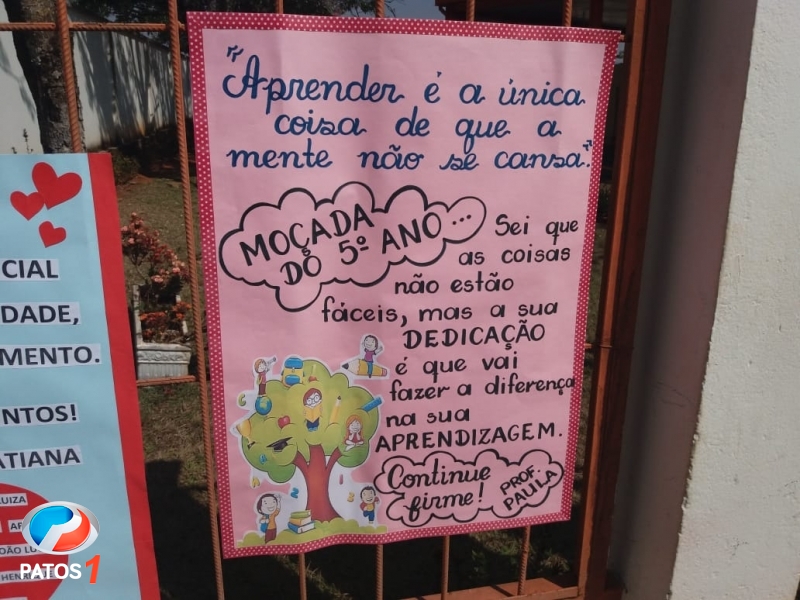 "Aprender é a única
coisa de que a
mente não se cansa."
MOÇADA
DO 5º ANO...
Sei que
as coisas
não estão
fáceis, mas a sua
DEDICAÇÃO
é que vai
fazer a diferença
na sua
APRENDIZAGEM.
Continue
firme!
PROF.
PAULA
CIAL
DADE,
MENTO.
NTOS!
ATIANA
LUIZA
HENRI
PATOS 1